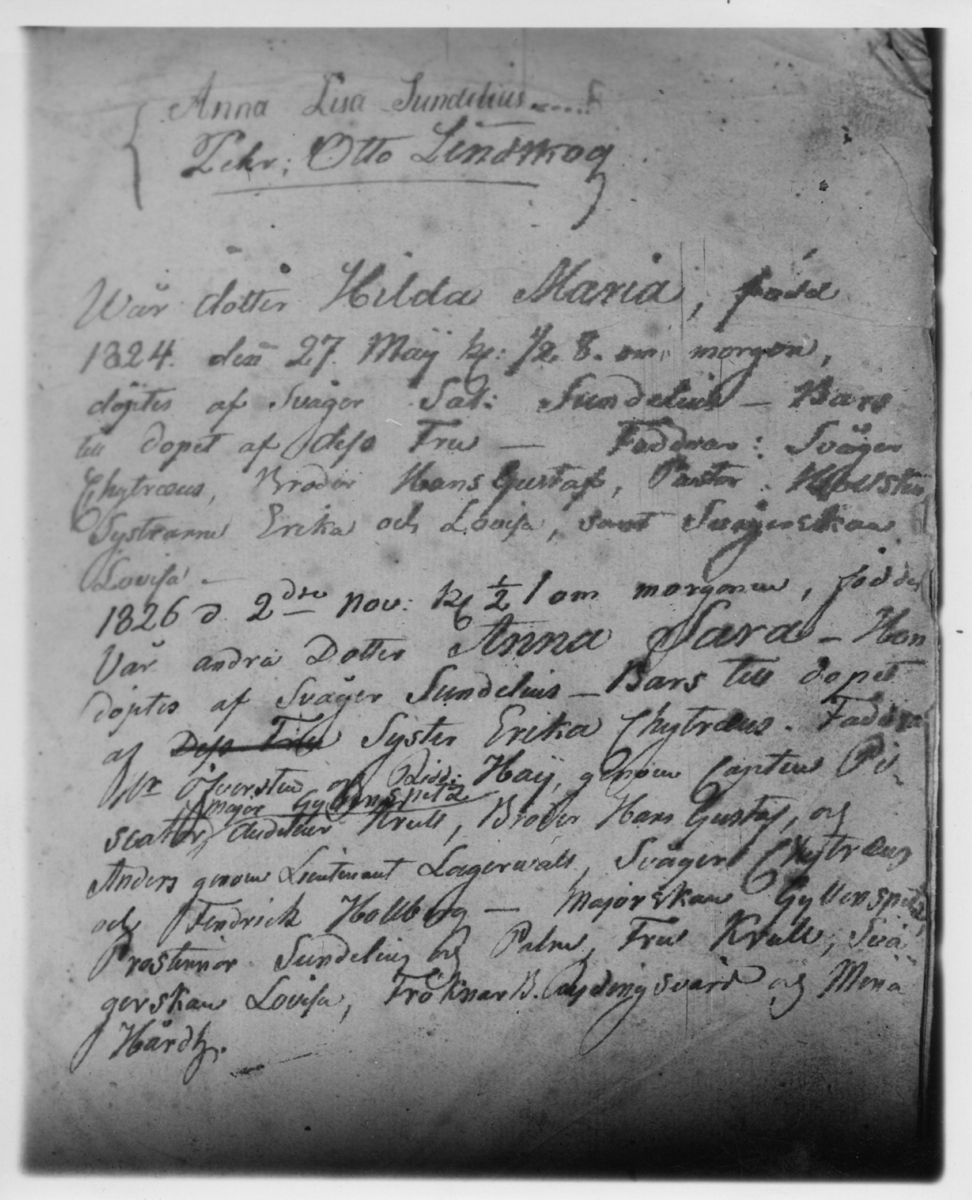 Anna Lisa Sundelius
Zchr: Otto Lindskog
Wår dotter Hilda Maria, född
1824. den 27. Maij kl: ½ 8. om morgon,
döptes af Svåger Sal: Sundelius – Bars
till dopet af dess Fru – Faddrar: Svåger
Chytræus, Broder Hans Gustaf, Pastor
Systrarne Erika och Lovisa, samt Svägerskan
Lovisa –
1826 d 2dre Nov: kl ½ 1 om morgonen, föddes
Vår andra Dotter Anna Sara – Hon
döptes af Svåger Sundelius – Bars till dopet
af Dess Fru Syster Erika Chytræus. Faddrar
Hr Öfversten och Ridd: Haij, genom Capten Pi-
Major Gyllenspetz
scator, Auditeur Krull, Broder Hans Gustaf, och
Anders genom Lieutenant Lagerwall, Svåger Chytræus
och Fendrick Hollberg – Majorskan Gyllenspetz,
Prostinnor Sundelius och Palm, Fru Krull, Svä
gerskan Lovisa, Fröknar B. Rydingsvärd och Mina
Hårdh.